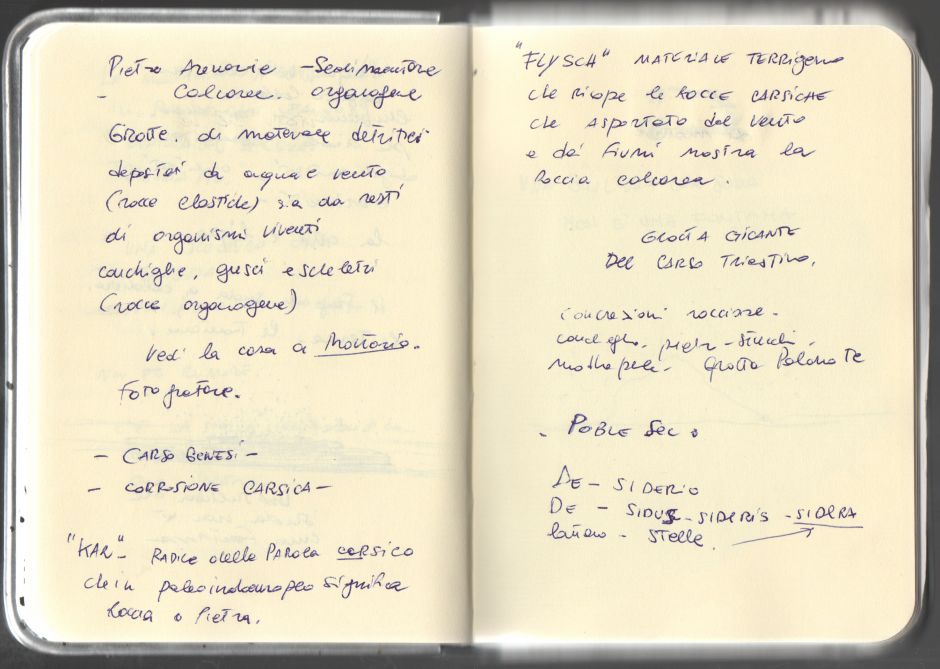 Pietre Arenarie - Sedimentare
- Calcaree. organogene
Grotte. di materiale detritici
depositi da acqua e vento
(rocce clastiche) sia da resti
di organismi viventi
conchiglie, gusci e scheletri
(rocce organogene)
Vedi la casa a Montorio.
Fotografare.
- CARSO GENESI -
- CORROSIONE CARSICA -
"KAR" - RADICE delle PAROLA CARSICO
che in paleoindoeuropeo significa
Roccia o Pietra.
"FLYSCH" MATERIALE TERRIGENO
che ricopre le ROCCE CARSICHE
che asportato dal vento
e dai fiumi mostra la
Roccia calcarea.
GROTTA GIGANTE
DEL CARSO TRIESTINO.
Concrezioni rocciose.
conchiglie
Grotta
. POBLE SEC .
DE - SIDERIO
DE - SIDUS - SIDERIS - SIDERA
latino - Stelle.